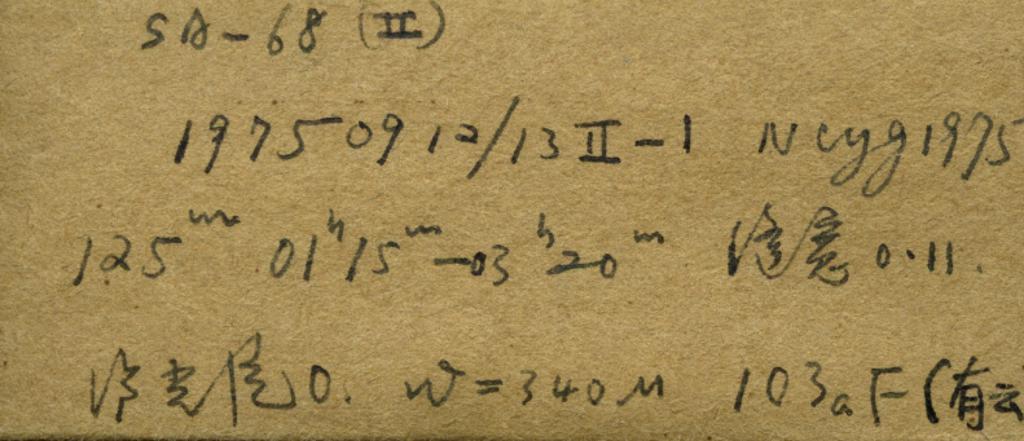 SA-68 (Ⅱ)
19750912/13 Ⅱ-1 N cyg 1975
125ᵐ 01ʰ15ᵐ-03ʰ20ᵐ 0.11.
0. W=340μ 103aF (有云